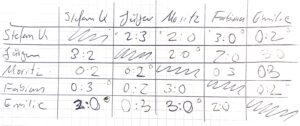 Stefan K Jürgen Moritz Fabian Emilie
Stefan K 2:3 2:0 3:0 0:2
Jürgen 3:2 2:0 2:0 3:0
Moritz 0:2 0:2 0:3 0:3
Fabian 0:3 0:2 3:0 0:2
Emilie 2:0 0:3 3:0 2:0